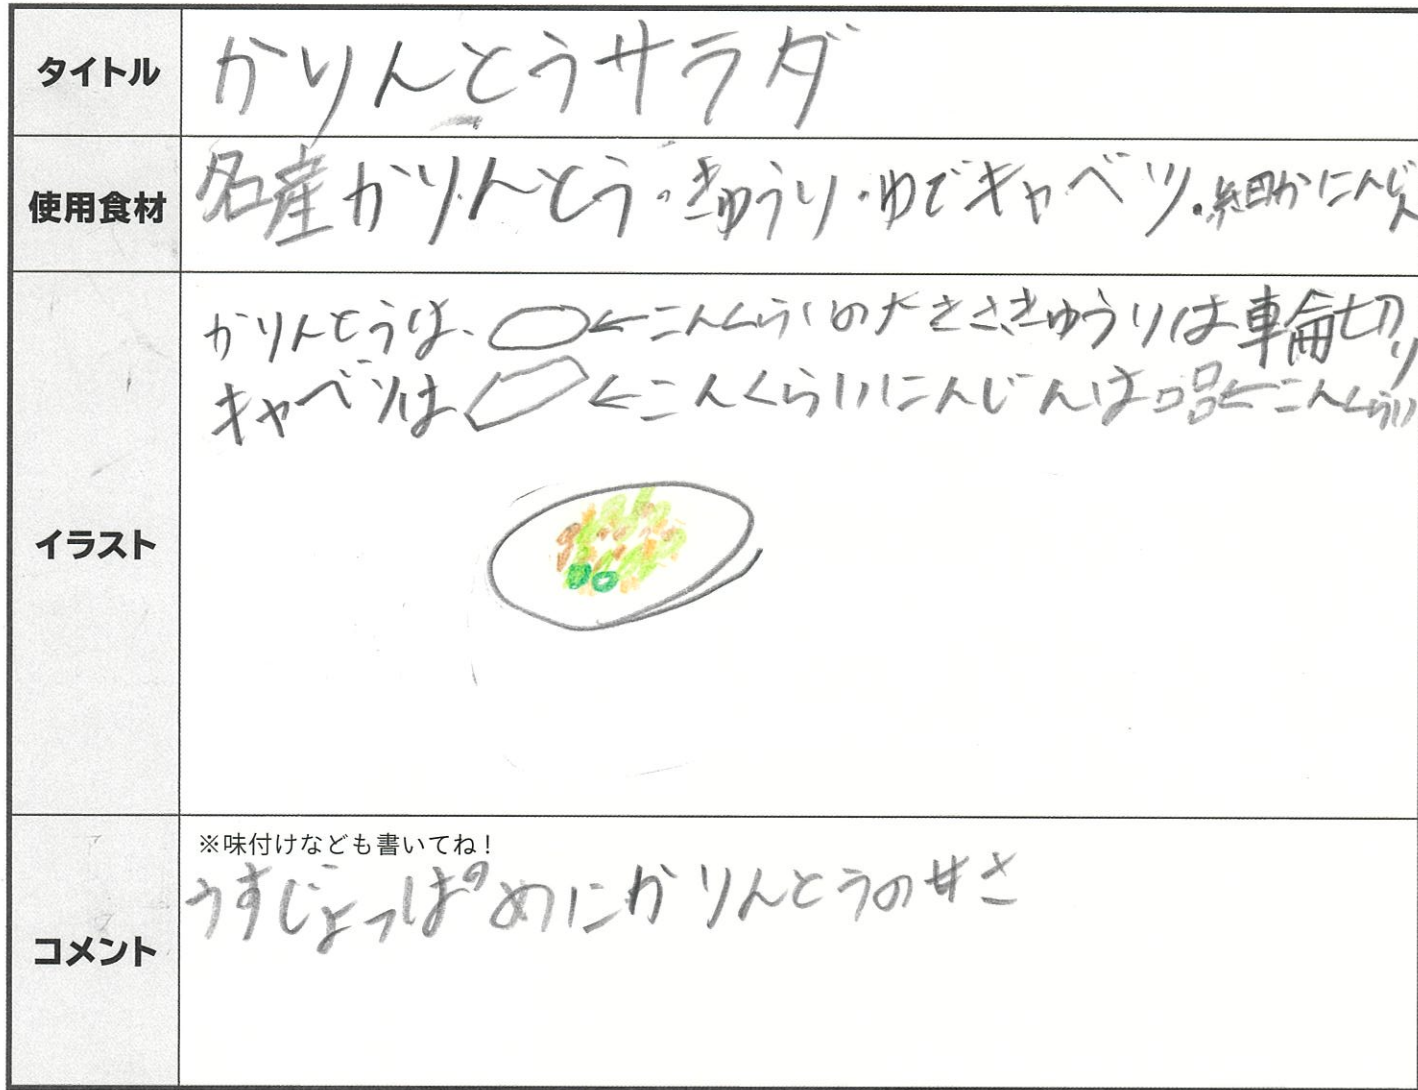 タイトル
かりんとうサラダ
使用食材
名産かりんとう・きゅうり・ゆでキャベツ・細かにんじん
イラスト
かりんとうは、←こんくらいの大きさ、きゅうりは車輪切り
キャベツは←こんくらいにんじんは←こんくらい
コメント
※味付けなども書いてね!
うすじょっぱめにかりんとうの甘さ